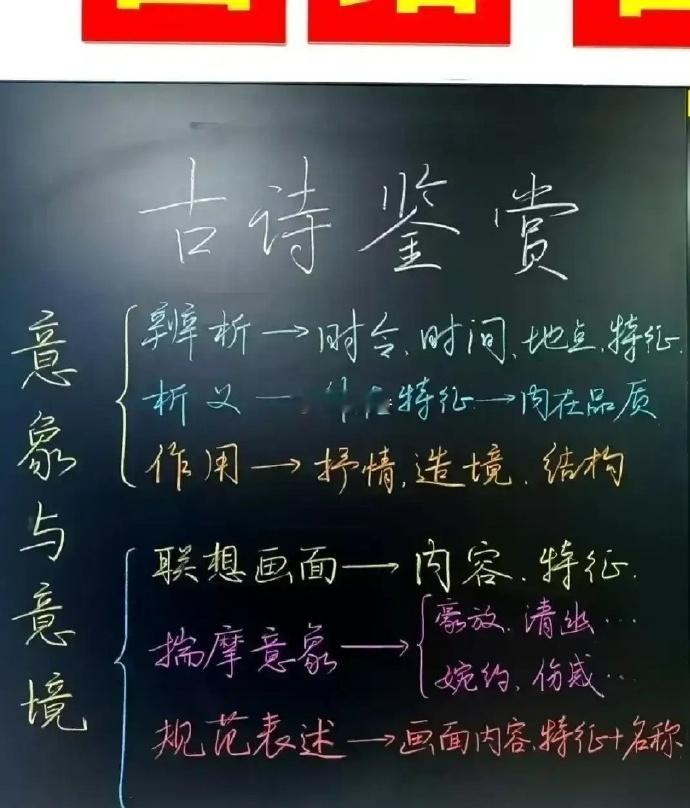 古诗鉴赏
意象与意境
辨析→时令、时间、地点、特征.
析义—特征→内在品质
作用→抒情,造境.结构
联想画面→内容.特征.
揣摩意象→豪放.清幽…
婉约、伤感…
规范表述→画面内容.特征+名称